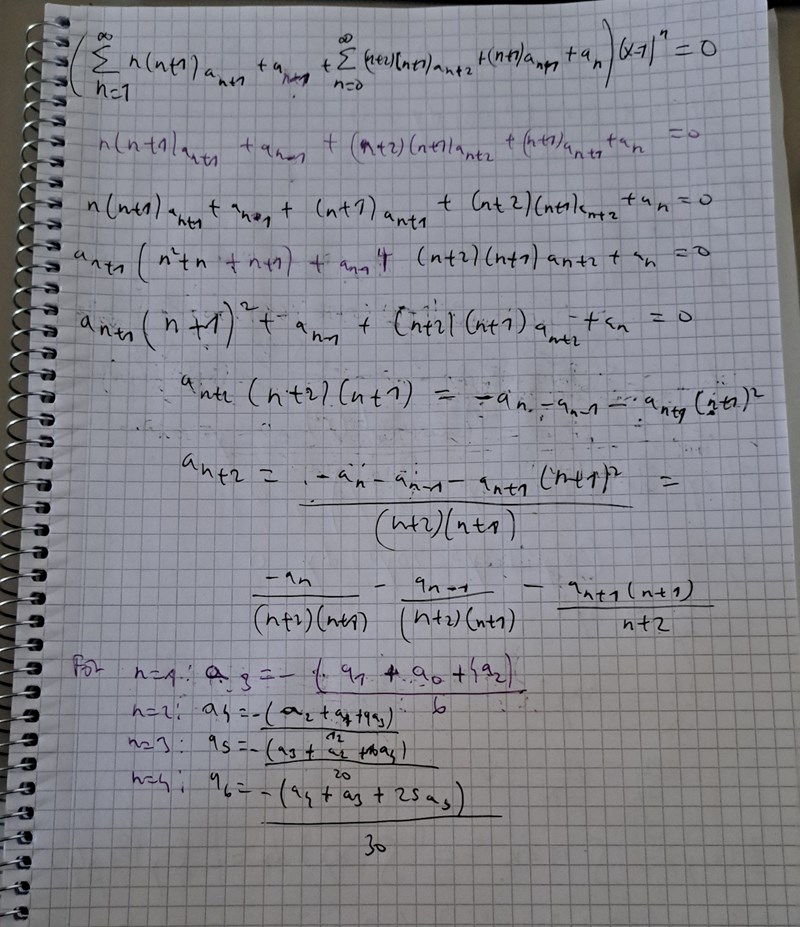 ( ∞∑n=1 n(n+1) aₙ₊₁ + aₙ₋₁ + ∞∑n=0 (n+2)(n+1)aₙ₊₂ + (n+1)aₙ₊₁ + aₙ ) (x-1)ⁿ = 0
n(n+1)aₙ₊₁ + aₙ₋₁ + (n+2)(n+1)aₙ₊₂ + (n+1)aₙ₊₁ + aₙ = 0
n(n+1)aₙ₊₁ + aₙ₋₁ + (n+1)aₙ₊₁ + (n+2)(n+1)aₙ₊₂ + aₙ = 0
aₙ₊₁ (n²+n+n+1) + aₙ₋₁ + (n+2)(n+1) aₙ₊₂ + aₙ = 0
aₙ₊₁ (n+1)² + aₙ₋₁ + (n+2)(n+1) aₙ₊₂ + aₙ = 0
aₙ₊₂ (n+2)(n+1) = -aₙ - aₙ₋₁ - aₙ₊₁ (n+1)²
aₙ₊₂ = (-aₙ - aₙ₋₁ - aₙ₊₁ (n+1)²) / ((n+2)(n+1)) =
-aₙ / ((n+2)(n+1)) - aₙ₋₁ / ((n+2)(n+1)) - aₙ₊₁(n+1) / (n+2)
For n=1: a₃ = -(a₁ + a₀ + 4a₂) / 6
n=2: a₄ = -(a₂ + a₁ + 9a₃) / 12
n=3: a₅ = -(a₃ + a₂ + 16a₄) / 20
n=4: a₆ = -(a₄ + a₃ + 25a₅) / 30